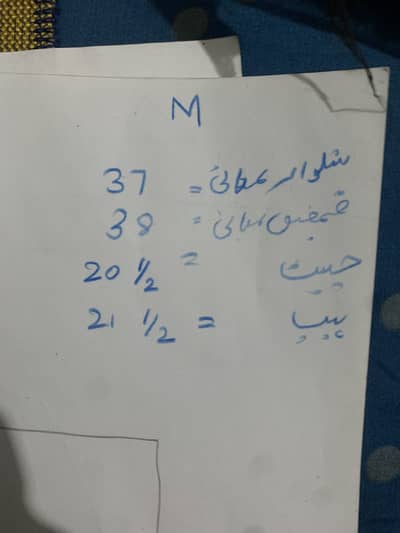 M
شلوار لمبائی = 37
قمیض لمبائی = 38
چیٹ = 20 1/2
ہپ = 21 1/2